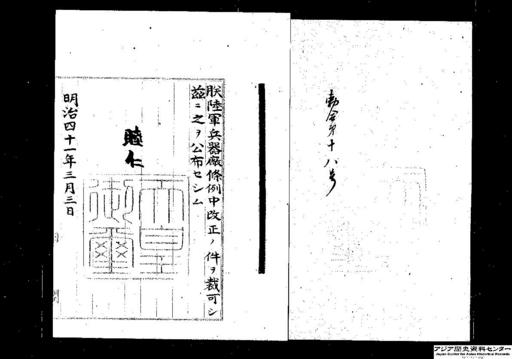 勅令第十八号
朕陸軍兵器廠條例中改正ノ件ヲ裁可シ
茲ニ之ヲ公布セシム
睦仁
天皇御璽
明治四十一年三月三日
アジア歴史資料センター
Japan Center for Asian Historical Records